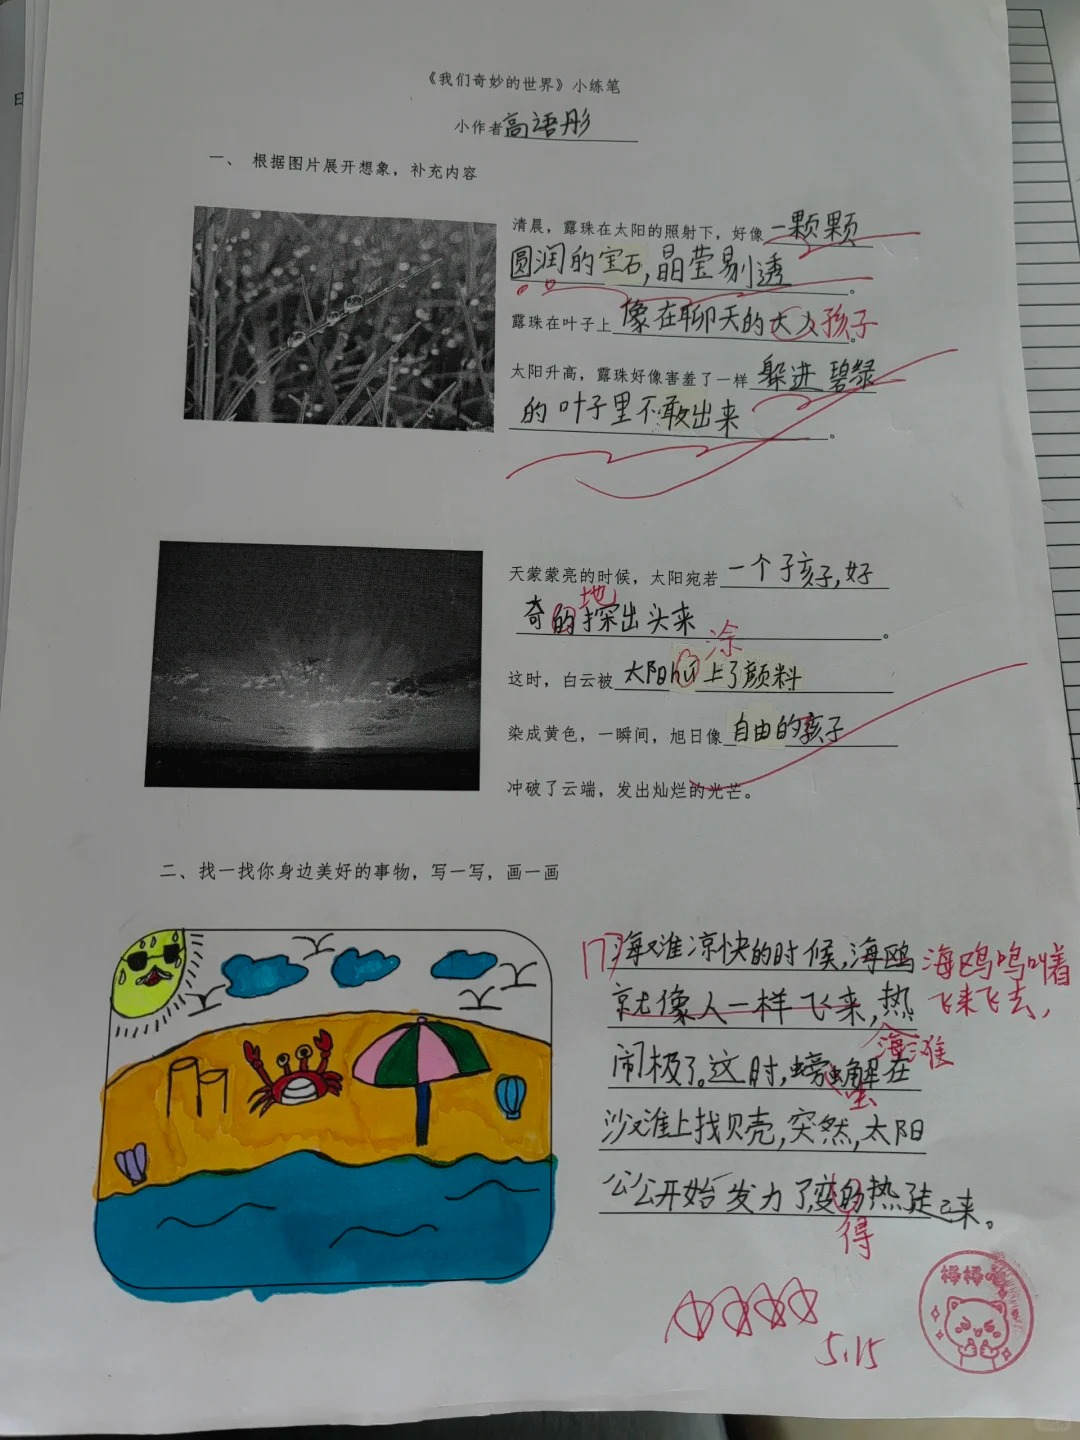 《我们奇妙的世界》小练笔
小作者高语彤
一、根据图片展开想象，补充内容
清晨，露珠在太阳的照射下，好像一颗颗
圆润的宝石,晶莹剔透。
露珠在叶子上像在聊天的大人孩子。
太阳升高，露珠好像害羞了一样躲进碧绿
的叶子里不敢出来。
天蒙蒙亮的时候，太阳宛若一个孑孩子,好
地
奇的探出头来。
涂
这时，白云被太阳hú上了颜料
染成黄色，一瞬间，旭日像自由的孩子
冲破了云端，发出灿烂的光芒。
二、找一找你身边美好的事物，写一写，画一画
海滩凉快的时候,海鸥 海鸥鸣叫着
就像人一样飞来,热 飞来飞去，
海滩
闹极了。这时,螃蟹在
沙滩上找贝壳,突然,太阳
公公开始发力了,变的热起来。
得
5.15
棒棒